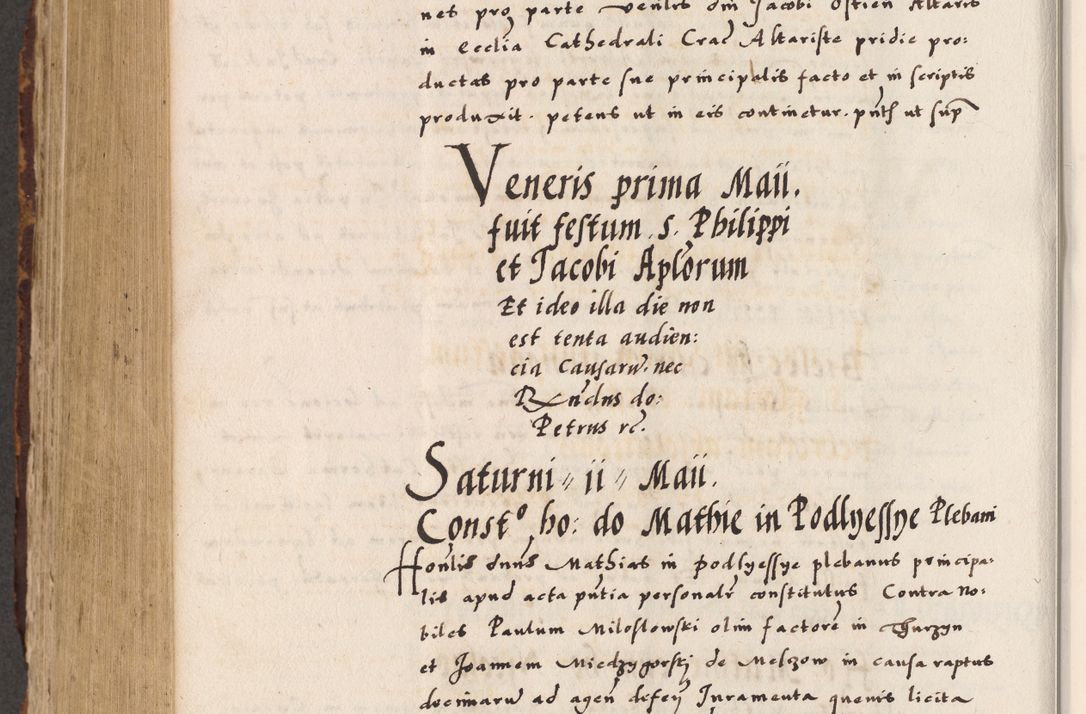 nes pro parte venlis dni Jacobi Ostien Altaris
in Ecclia Cathedrali Crac Altariste pridie pro:
ductas pro parte sue principalis facto et in scriptis
produxit. petens ut in eis continetur. pnts ut sup
Veneris prima Maii.
fuit festum .S. Philippi
et Jacobi Aplorum
Et ideo illa die non
est tenta audien:
cia causaru. nec
Rndus do:
Petrus rc.
Saturni // ii // Maii.
Consto ho: do Mathie in Podlyessye Plebani
Honlis dnus Mathias in podlyessye plebanus principa:
lis apud acta pntia personalr constitutus Contra No:
biles Paulum Miloslowski olim factore in Thurzyn
et Joannem Miedzygorskj de Melzow in causa raptus
decimaru ad agen defen Juramenta quevis licita